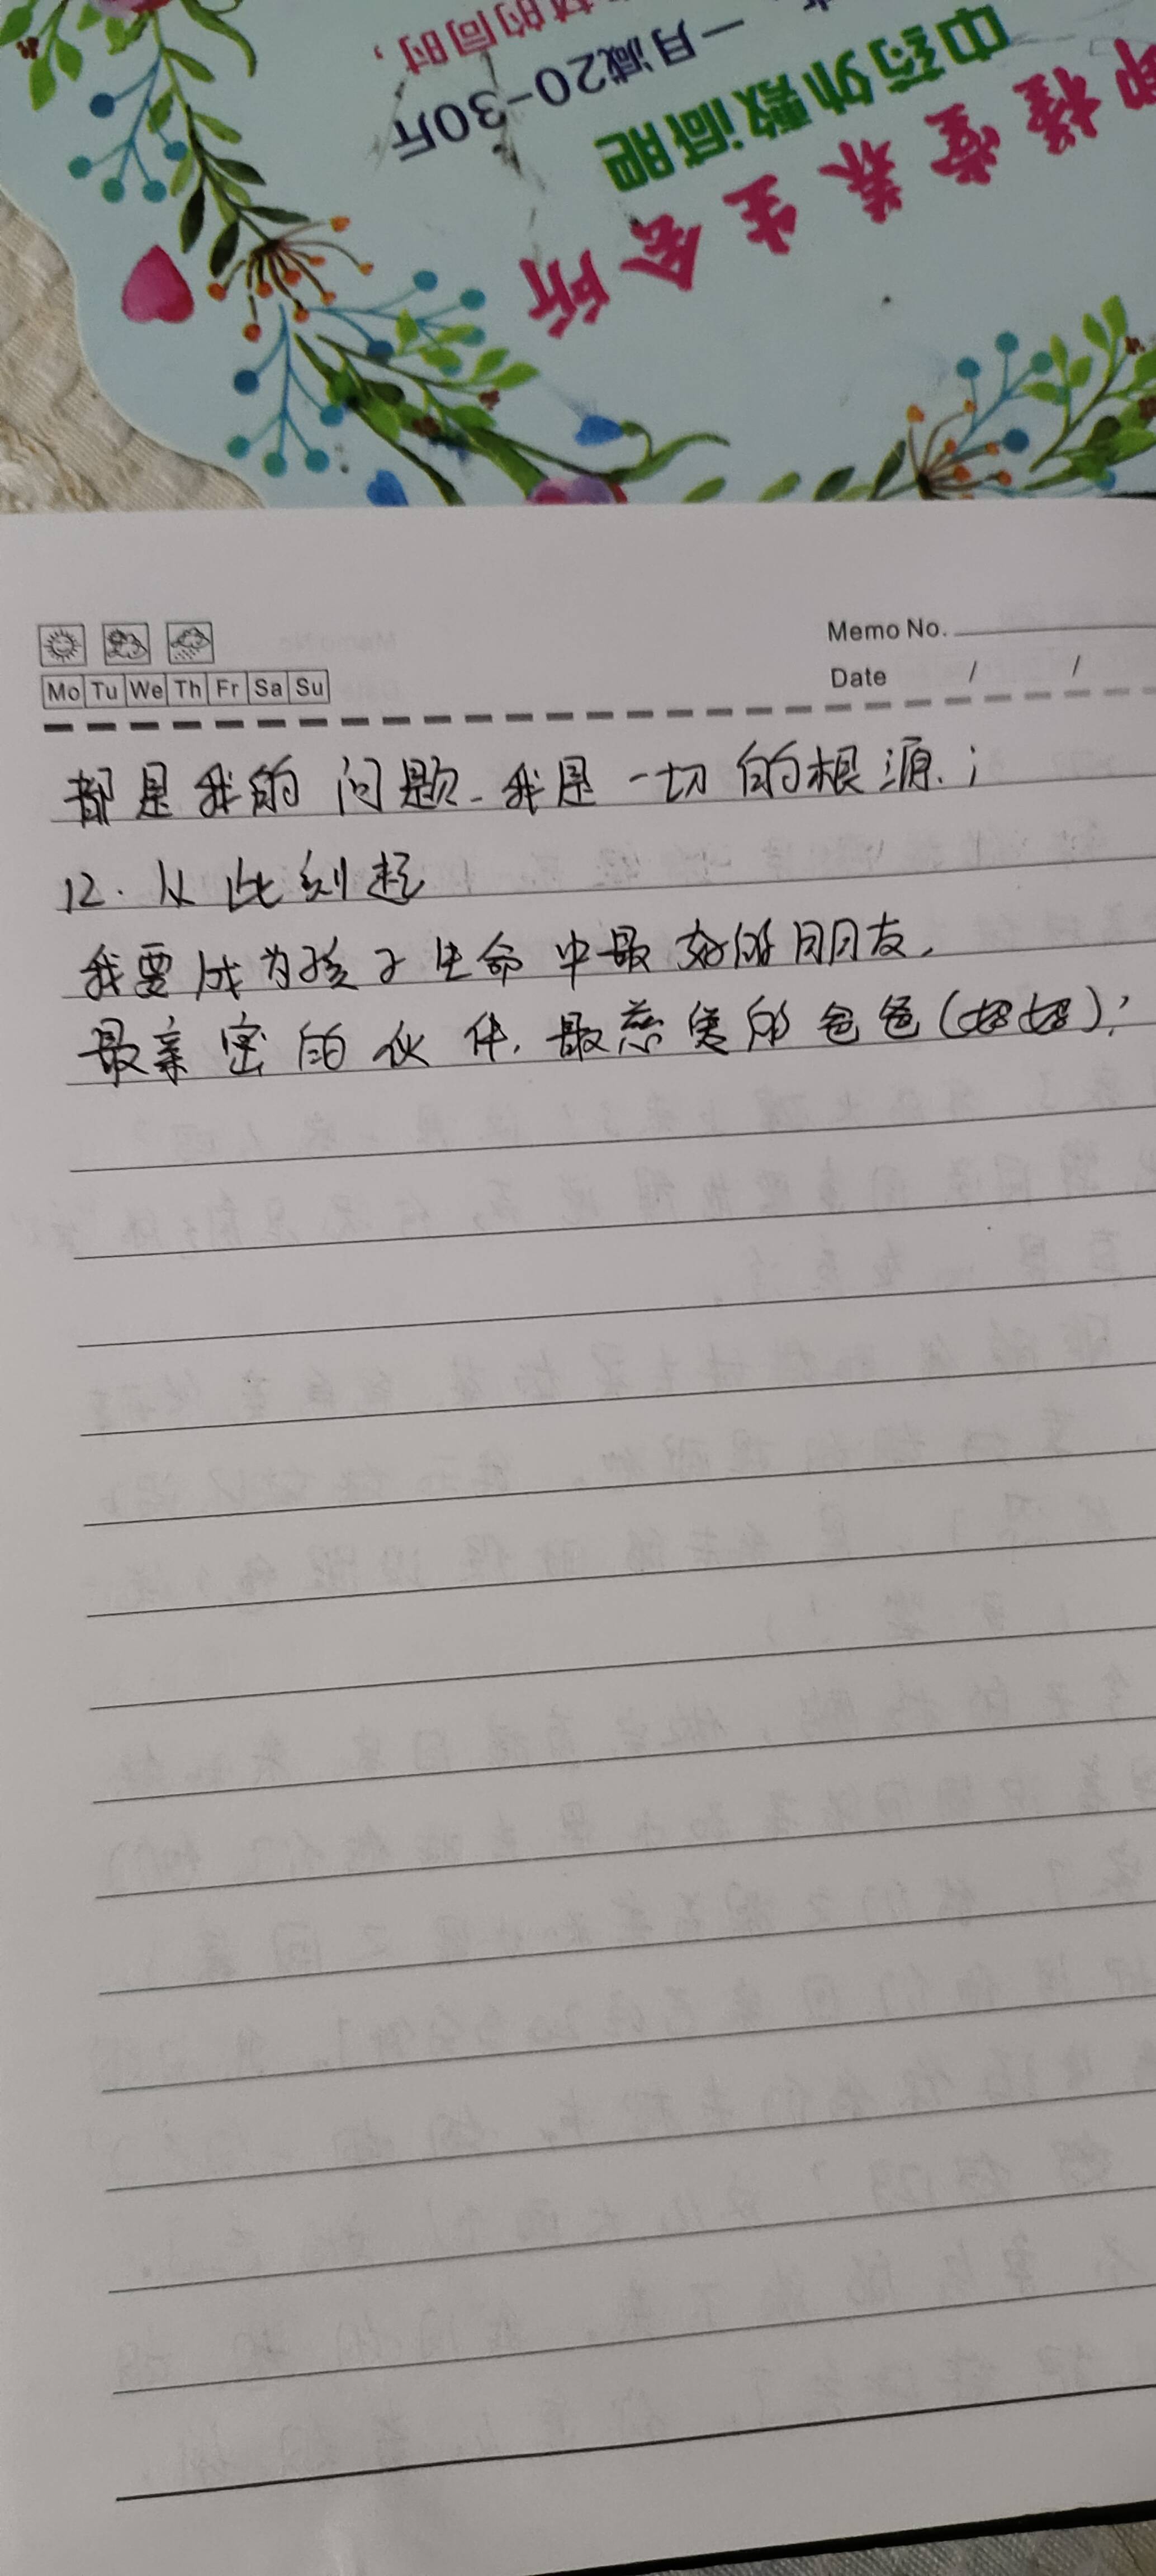 中药外敷减肥
一月减20-30斤
的同时,
堂养生会所
Memo No.
Date / /
Mo Tu We Th Fr Sa Su
都是我的问题.我是一切的根源.;
12.从此刻起
我要成为孩子生命中最好的朋友,
最亲密的伙伴,最慈爱的爸爸(妈妈);